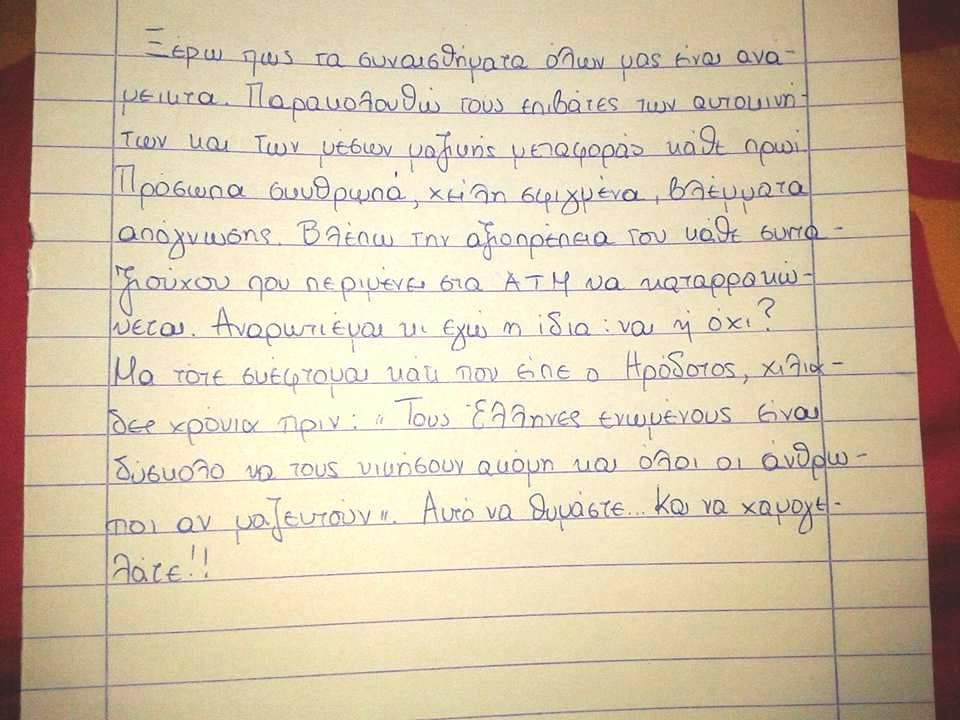 Ξέρω πως τα συναισθήματα όλων μας είναι ανά-
μεικτα. Παρακολουθώ τους επιβάτες των αυτοκινή-
των και των μέσων μαζικής μεταφοράς κάθε πρωί.
Πρόσωπα σκυθρωπά, χείλη σφιγμένα, βλέμματα
απόγνωσης. Βλέπω την αξιοπρέπεια του κάθε συντα-
ξιούχου που περιμένει στα ΑΤΜ να καταρρακώ-
νεται. Αναρωτιέμαι κι εγώ η ίδια: ναι ή όχι?
Μα τότε σκέφτομαι κάτι που είπε ο Ηρόδοτος, χιλιά-
δες χρόνια πριν: "Τους Έλληνες ενωμένους είναι
δύσκολο να τους νικήσουν ακόμη και όλοι οι άνθρω-
ποι αν μαζευτούν". Αυτό να θυμάστε... Και να χαμογε-
λάτε!!